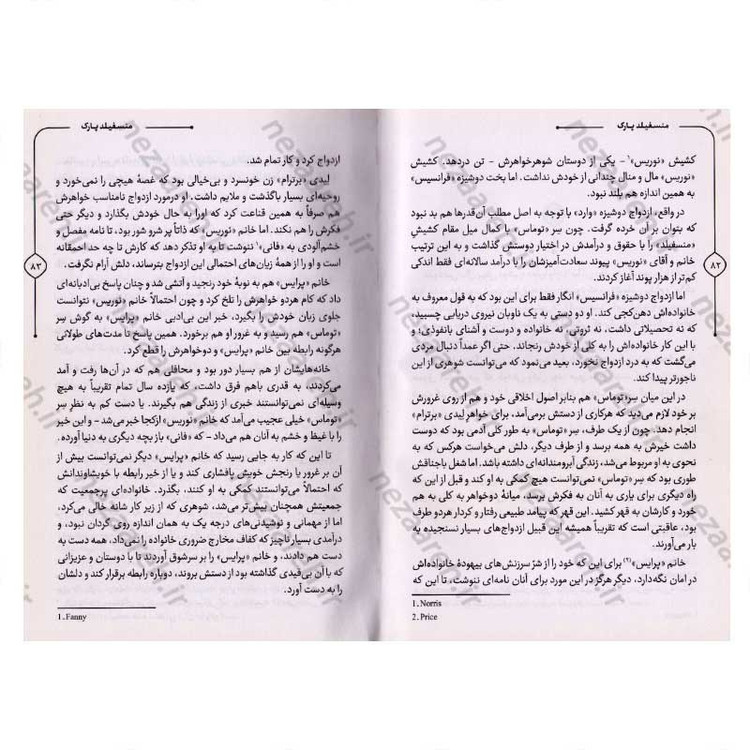 منسفیلد پارک
۸۲
کشیش «نوریس»¹ – یکی از دوستان شوهرخواهرش – تن دردهد. کشیش
«نوریس» مال و منال چندانی از خودش نداشت. اما بخت دوشیزه «فرانسیس»
به همین اندازه هم بلند نبود.
در واقع، ازدواج دوشیزه «وارد» با توجه به اصل مطلب آن‌قدرها هم بد نبود
که بتوان بر آن خرده گرفت. چون سِر «توماس» با کمال میل مقام کشیش
«منسفیلد» را با حقوق و درآمدش در اختیار دوستش گذاشت و به این ترتیب
خانم و آقای «نوریس» پیوند سعادت‌آمیزشان را با درآمد سالانه‌ای فقط اندکی
کم‌تر از هزار پوند آغاز کردند.
اما ازدواج دوشیزه «فرانسیس» انگار فقط برای این بود که به قول معروف به
خانواده‌اش دهن‌کجی کند. او دو دستی به یک ناوبان نیروی دریایی چسبید،
که نه تحصیلاتی داشت، نه ثروتی، نه خانواده و دوست و آشنای بانفوذی؛ و
با این کار خانواده‌اش را به کلی از خودش رنجاند. حتی اگر عمداً دنبال مردی
می‌گشت که به درد ازدواج نخورد، بعید می‌نمود که می‌توانست شوهری از این
ناجورتر پیدا کند.
در این میان سِر «توماس» هم بنابر اصول اخلاقی خود و هم از روی غرورش
بر خود لازم می‌دید که هرکاری از دستش برمی‌آمد، برای خواهر لیدی «برترام»
انجام دهد. چون از یک طرف، سِر «توماس» به طور کلی آدمی بود که دوست
داشت خیرش به همه برسد و از طرف دیگر، دلش می‌خواست هرکس که به
نحوی به او مربوط می‌شد، زندگی آبرومندانه‌ای داشته باشد. اما شغل باجناقش
طوری بود که سِر «توماس» نمی‌توانست هیچ کمکی به او کند و قبل از این که
راه دیگری برای یاری به آنان به فکرش برسد، میانهٔ دوخواهر به کلی به هم
خورد و کارشان به قهر کشید. این قهر که پیامد طبیعی رفتار و کردار هردو طرف
بود، عاقبتی است که تقریباً همیشه این قبیل ازدواج‌های بسیار نسنجیده به
بار می‌آورند.
خانم «پرایس»⁽²⁾ برای این که خود را از شرّ سرزنش‌های بیهودهٔ خانواده‌اش
در امان نگه‌دارد، دیگر هرگز در این مورد برای آنان نامه‌ای ننوشت، تا این که
1. Norris
2. Price
منسفیلد پارک
۸۳
ازدواج کرد و کار تمام شد.
لیدی «برترام» زن خونسرد و بی‌خیالی بود که غصهٔ هیچی را نمی‌خورد و
روحیه‌ای بسیار باگذشت و ملایم داشت. او درمورد ازدواج نامناسب خواهرش
هم صرفاً به همین قناعت کرد که او را به حال خودش بگذارد و دیگر حتی
فکرش را هم نکند. اما خانم «نوریس» که ذاتاً پر شر و شور بود، تا نامه مفصل و
خشم‌آلودی به «فانی»¹ ننوشت تا به او تذکر دهد که کارش تا چه حد احمقانه
است و او را از همهٔ زیان‌های احتمالی این ازدواج بترساند، دلش آرام نگرفت.
خانم «پرایس» هم به نوبهٔ خود رنجید و آتشی شد و چنان پاسخ بی‌ادبانه‌ای
داد که کام هردو خواهرش را تلخ کرد و چون احتمالاً خانم «نوریس» نتوانست
جلوی زبان خودش را بگیرد، خبر این بی‌ادبی خانم «پرایس» به گوش سِر
«توماس» هم رسید و به غرور او هم برخورد. همین پاسخ تا مدت‌های طولانی
هرگونه رابطه بین خانم «پرایس» و دوخواهرش را قطع کرد.
خانه‌هایشان از هم بسیار دور بود و محافلی هم که در آن‌ها رفت و آمد
می‌کردند، به قدری باهم فرق داشت، که یازده سال تمام تقریباً به هیچ
وسیله‌ای نمی‌توانستند خبری از زندگی هم بگیرند. یا دست کم به نظرِ سِر
«توماس» خیلی عجیب می‌آمد که خانم «نوریس» ازکجا خبر می‌شد – و این خبر
را با غیظ و خشم به آنان هم می‌داد – که «فانی» باز بچه دیگری به دنیا آورده.
تا این که کار به جایی رسید که خانم «پرایس» دیگر نمی‌توانست بیش از
آن بر غرور یا رنجش خویش پافشاری کند و یا از خیر رابطه با خویشاوندانش
که احتمالاً می‌توانستند کمکی به او کنند، بگذرد. خانواده‌ای پرجمعیت که
جمعیتش همچنان بیش‌تر می‌شد، شوهری که از زیر کار شانه خالی می‌کرد،
اما از مهمانی و نوشیدنی‌های درجه یک به همان اندازه روی گردان نبود، و
درآمدی بسیار ناچیز که کفاف مخارج ضروری خانواده را نمی‌داد، همه دست به
دست هم دادند، و خانم «پرایس» را بر سرشوق آوردند تا با دوستان و عزیزانی
که با آن بی‌قیدی گذاشته بود از دستش بروند، دوباره رابطه برقرار کند و دلشان
را به دست آورد.
1. Fanny
nezaareh.ir